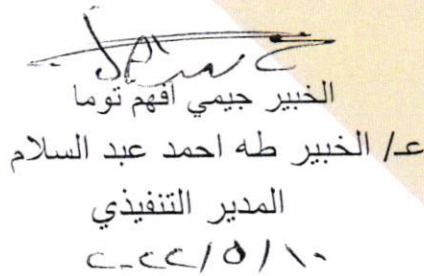 الخبير جيمي افهم توما
عـ/ الخبير طه احمد عبد السلام
المدير التنفيذي
٢٠٢٢/٥/١٠